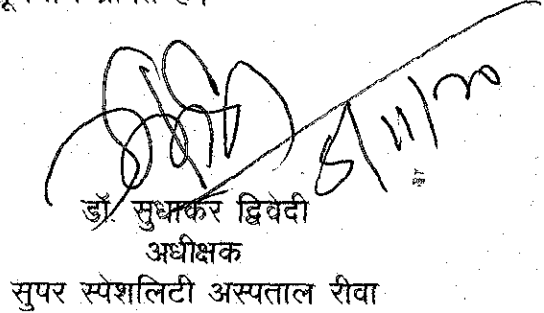 5/11/20
डॉ. सुधाकर द्विवेदी
अधीक्षक
सुपर स्पेशलिटी अस्पताल रीवा